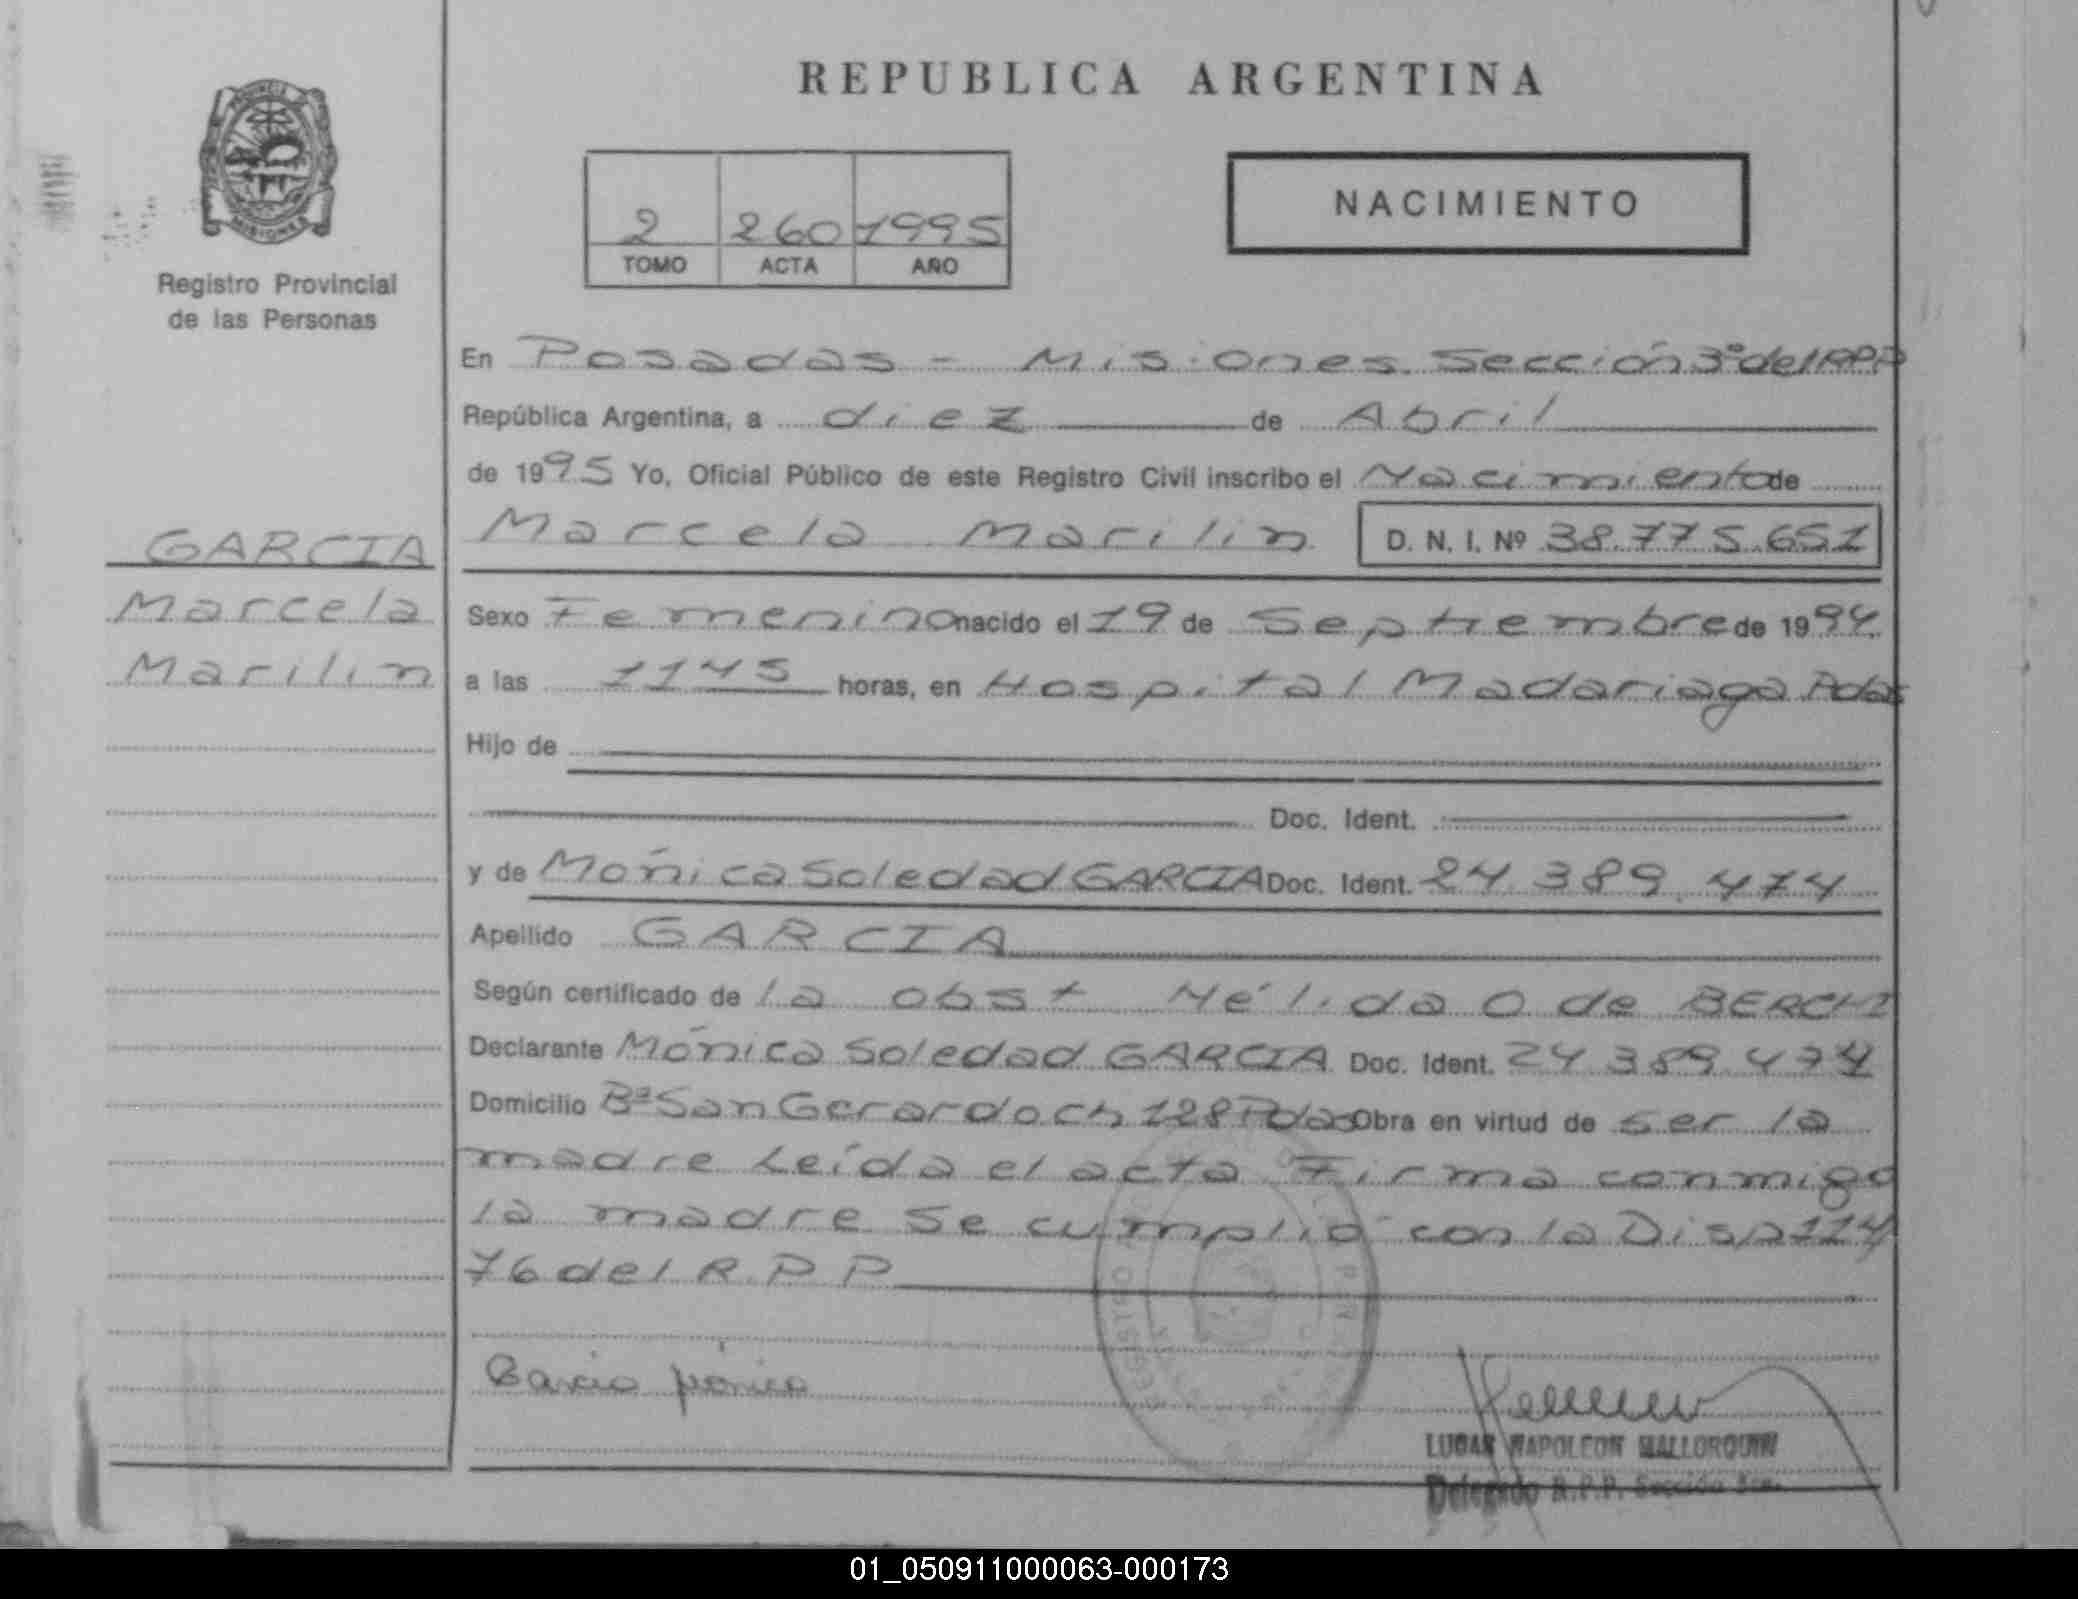 REPUBLICA ARGENTINA
PROVINCIA DE
MISIONES
Registro Provincial
de las Personas
2 260 1995
TOMO ACTA AÑO
NACIMIENTO
En Posadas - Misiones. Sección 3º del RPP
República Argentina, a diez de Abril
de 1995 Yo, Oficial Público de este Registro Civil inscribo el Nacimiento de
GARCIA
Marcela
Marilin
Marcela Marilin D. N. I. Nº 38.775.651
Sexo Femenino nacido el 19 de Septiembre de 1994.
a las 1145 horas, en Hospital Madariaga Pdas
Hijo de
Doc. Ident.
y de Mónica Soledad GARCIA Doc. Ident. 24.389.474
Apellido GARCIA
Según certificado de la obst Nélida O de BERCHI
Declarante Mónica Soledad GARCIA Doc. Ident. 24.389.474
Domicilio Bº San Gerardo ch 128 Pdas Obra en virtud de ser la
madre Leída el acta Firma conmigo
la madre se cumplió con la Disp 114
76 del R.P.P
Garcia Mónica
NAPOLEON MALLORQUIN
Delegado R.P.P. Sección 3ra.
01_050911000063-000173